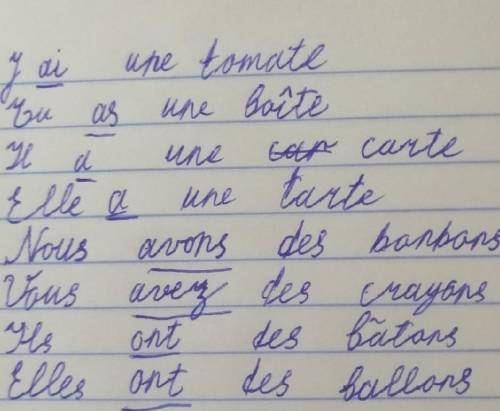 J ai une tomate
Tu as une boîte
Il a une car carte
Elle a une tarte
Nous avons des bonbons
Vous avez des crayons
Ils ont des bâtons
Elles ont des ballons